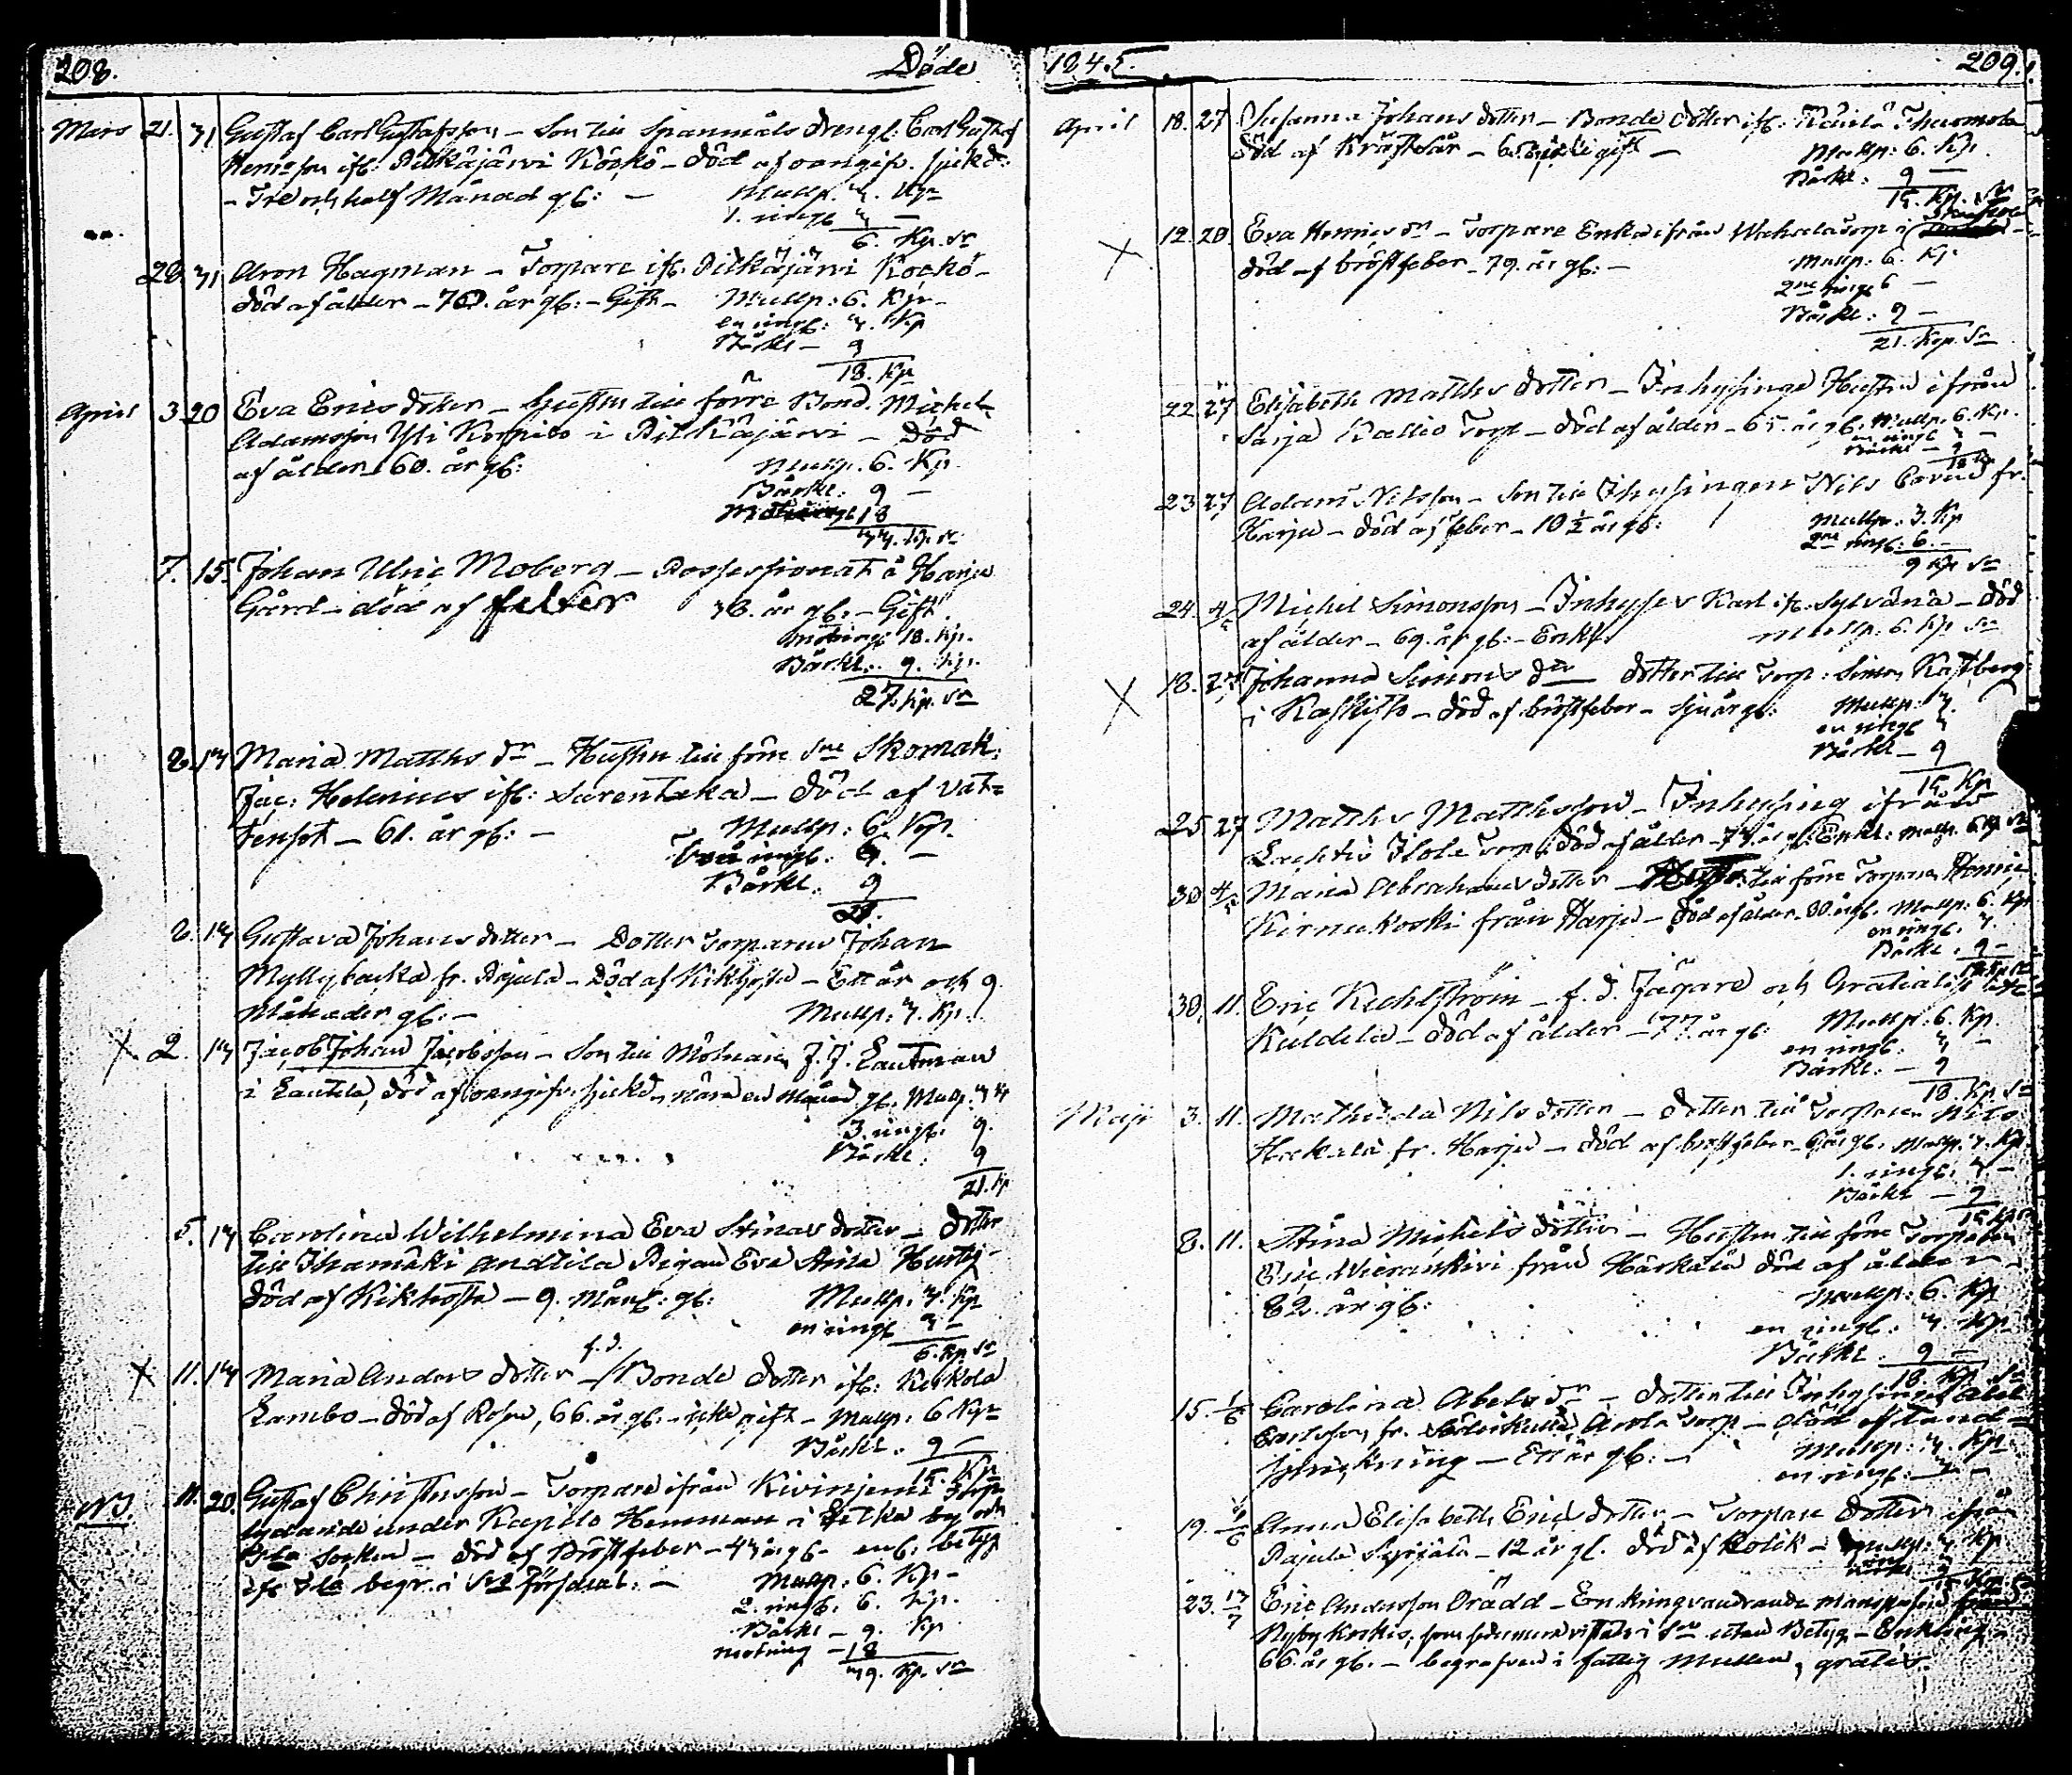 208. Döde
Mars 21. 31 Gustaf Carl Gustafsson - Son till Spanmåls drengl: Carl Gustaf
Henricsson ifl: Pitkäjärwi Körkö - död af oangifv. sjukd:
- Tre och half Månad gl: - Mullp. 3. Kp
1. ringl 3 -
6. Kp. Sr
28. 31 Aron Hagman - Torpare ifl. Pitkäjärwi Körkö -
död af ålder - 70. år gl: - Gift - Mullp: 6. Kp -
en ringl: 3. Kp
Bårkl - 9
18. Kp
April 3 20 Eva Erics dotter - Hustru till förre Bond. Michel
Adamsson Yli i Pitkäjärwi - Död
af ålder 60. år gl: Mullp. 6. Kp.
Bårkl: 9 -
18
33. Kp. Sr
7. 15. Johan Ulric Moberg - Possessionat å Harju
Gård - död af feber 38. år gl. - Gift.
Möringl 18. Kp.
Bårkl: 9. Kp.
27. Kp. Sr
8. 13 Maria Matths dr - Hustru till förre Sne Skomak:
Jac: Helenius ifl: Sarentaka - Död af Vat-
tensot - 61. år gl: - Mullp: 6. Kp.
Två ringl: 6. -
Bårkl. 9
21.
2. 13 Gustava Johans dotter - Dotter Torparens Johan
Myllybacka fr. Rajala - Död af Kikhosta - Ett år och 9
Månader gl: - Mullp: 3. Kp.
X 2. 13 Jacob Johan Jacobsson - Son till Mölnaren J. J. Lautman
i Lautela, död af oangifv. sjukd. nära en Månad gl. Mullp. 3
3. ringl: 9.
Bårkl: 9
21. Kp
5. 13 Carolina Wilhelmina Eva Stinas dotter - Dotter
till Ihamäki Anttila Pigan Eva Stina Hurtig
död af Kikhosta - 9. Mån: gl: Mullp. 3. Kp
en ringl 3 -
6. Kp Sr
X 11. 13 Maria Anders dotter - f. d. Bonde dotter ifl: Keskola
Lambo - död af Rosen, 66. år gl. - icke gift - Mullp: 6 Kp
Bårkl. 9 -
15. Kp
11. 20. Gustaf Christersson - Torpare ifrån Kivinjemi Torp
lydande under Kapilo Hemman i by och
socken - död af Bröstfeber - 43 år gl - enl. betyg
begr. i Sne församl: - Mullp: 6. Kp -
2. ringl: 6. Kp.
Bårkl - 9. Kp
- 18
39. Kp. Sr
1845. 209.
April 18. 27 Susanna Johans dotter - Bonde dotter ifl: Tuomola
död af Kräftsår - gift - Mullp: 6. Kp.
Bårkl: 9 -
15. Kp. Sr
X 12. 20. Eva Henrics dr - Torpare Enka ifrån Torp i
död af bröstfeber - 79. år gl: - Mullp: 6. Kp.
2ne ringl 6 -
Bårkl: 9 -
21. Kp. Sr
22. 27 Elisabeth Matths dotter - Inhysinge Hustru ifrån
Sarja Kallio Torp - död af ålder - 65. år gl. Mullp. 6. Kp.
en ringl 3 -
Bårkl - 9
18
23 27 Adam Nilsson - Son till Inhysingen Nils fr.
Harju - död af feber - 10 ½ år gl: Mullp: 3. Kp
2ne ringl: 6. -
9 Kp Sr
24. 4/5 Michel Simonsson - Inhyses Karl ifr. Sylvänä - död
af ålder - 69. år gl: - Enkl. Mullp: 6. Kp Sr
X 18. 27 Johanna Simons dr dotter till Torp: Simon Kastberg
i - död af bröstfeber - sju år gl: Mullp: 3.
en ringl 3
Bårkl - 9
15 Kp
25. 27 Matths Matthsson - Inhysing ifrån
Torp: död af ålder - 73. år gl. Enkl: Mullp. 6 Kp Sr
30 4/5 Maria Abrahams dotter - till förre Torparen Henric
Kirnukoski från Harju - Död af ålder - 80. år gl. Mullp: 6. Kp
en ringl. 3.
Bårkl. 9 -
18 Kp Sr
30. 11. Eric - f. d. Jägare och Gratialist
Kuldela - död af ålder - 77. år gl: Mullp: 6. Kp.
en ringl: 3 -
Bårkl: - 9
18. Kp Sr
Maji 3. 11. Mathilda Nils dotter - dotter till Torparen Nils
Hakala fr. Harju - död af bröstfeber - 6 år gl. Mullp: 3. Kp.
1. ringl: 3. -
Bårkl - 9
15 Kp Sr
8. 11. Stina Michels dotter - Hustru till förre Torparen
Eric Wierankivi från Härkälä död af ålder -
82. år gl: Mullp: 6. Kp
en ringl: 3. Kp
Bårkl. 9 -
18. Kp Sr
15. 1/6 Carolina Abels dr - dotter till Inhysingen Abel
Carlsson fr. Torp - död af tand-
sprickning - Ett år gl: - Mullp: 3. Kp.
en ringl: 3 -
19. /6 Anna Elisabeth Erics dotter - Torpare dotter ifrån
Rajala - 12 år gl. död af Kolik - Mullp: 3 Kp
23. 17/7 Eric Andersson Orädd - En kringvandrande Mansperson från
Nyby som vistats i Sne utan Betyg - Enkling -
66. år gl. - begrafven i fattig Mullen, gratis.